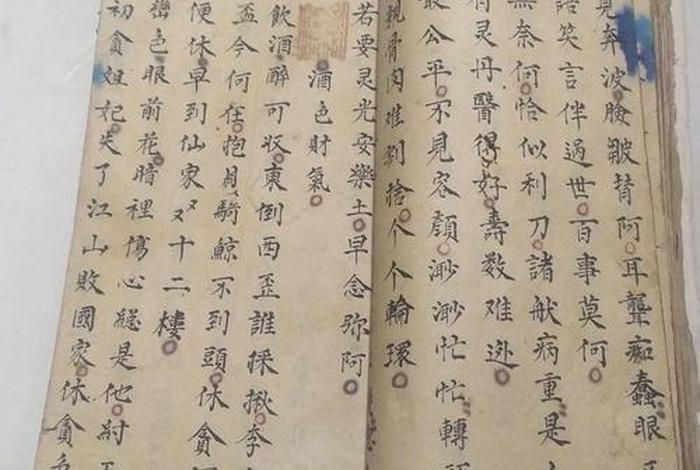 見奔波臉皺替阿耳聾痴蠢眼
語笑言伴過世百事莫何
無奈何恰似利刀諸般病重是
有灵丹醫得好壽数难逃
最公平不見容顏渺渺忙忙轉
親骨肉难割捨个个輪環
若要灵光安樂土早念弥阿
酒色財氣
飲酒醉可収東倒西歪誰保揪李
盃今何在抱月騎鯨不到頭休貪
便休早到仙家又又十二樓
巒色眼前花暗裡傷心總是他紂
初貪妲妃失了江山敗國家休貪